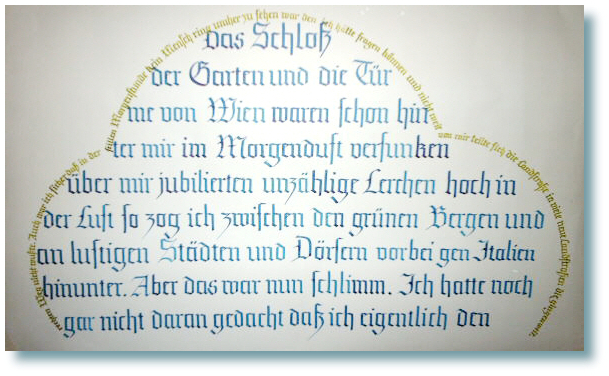 Das Schloß
der Garten und die Tür
me von Wien waren schon hin
ter mir im Morgenduft versunken
über mir jubilierten unzählige Lerchen hoch in
der Luft so zog ich zwischen den grünen Bergen und
an lustigen Städten und Dörfern vorbei gen Italien
hinunter. Aber das war nun schlimm. Ich hatte noch
gar nicht daran gedacht daß ich eigentlich den
rechten Weg nicht wußte. Auch war ich sicher daß in der stillen Morgenstunde kein Mensch rings umher zu sehen war den ich hätte fragen können und nicht weit von mir teilte sich die Landstraße in viele neue Landstraßen die gingen weit.